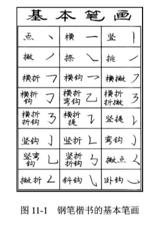 基本笔画
点 丶 横 一 竖 丨
撇 丿 捺 ㇏ 挑 ㇀
横折 ㇕ 横钩 ㇖ 横撇 ㇇
横折钩 ㇆ 横折弯钩 ㇈ 横折折撇 ㇋
横折折钩 ㇌ 横折提 ㇊ 竖提 ㇙
竖钩 亅 竖折 ㇗ 弯钩 ㇁
竖弯钩 ㇟ 竖折折钩 ㇉ 撇点 ㇛
撇折 ㇜ 斜钩 ㇂ 卧钩 ㇃
图 11-1 钢笔楷书的基本笔画